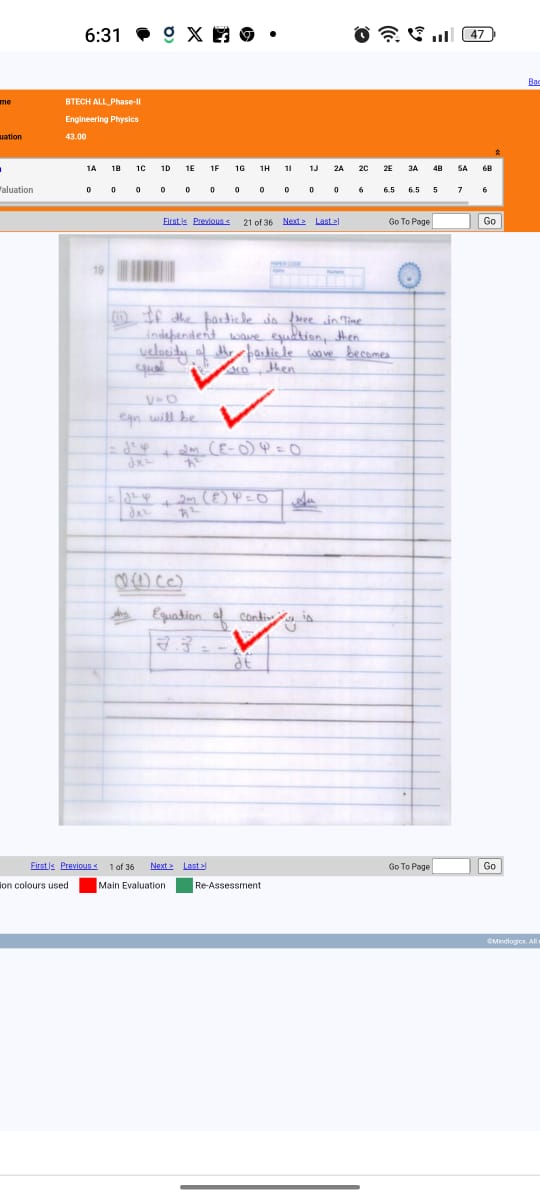 6:31
47
Bac
me
BTECH ALL_Phase-II
Engineering Physics
uation
43.00
1A 1B 1C 1D 1E 1F 1G 1H 1I 1J 2A 2C 2E 3A 4B 5A 6B
Valuation 0 0 0 0 0 0 0 0 0 0 0 6 6.5 6.5 5 7 6
First |< Previous < 21 of 36 Next > Last >| Go To Page Go
19
(ii) If the particle is free in Time
independent wave equation, then
velocity of the particle wave becomes
equal then
V=0
eqn will be
= ∂²ψ/∂x² + 2m/ħ² (E-0) ψ = 0
= ∂²ψ/∂x² + 2m/ħ² (E) ψ = 0 Ans
Q(1) (c)
Ans Equation of is
∇⃗.J⃗ = - ∂t
First |< Previous < 1 of 36 Next > Last >| Go To Page Go
ion colours used Main Evaluation Re-Assessment
©Mindlogicx. All